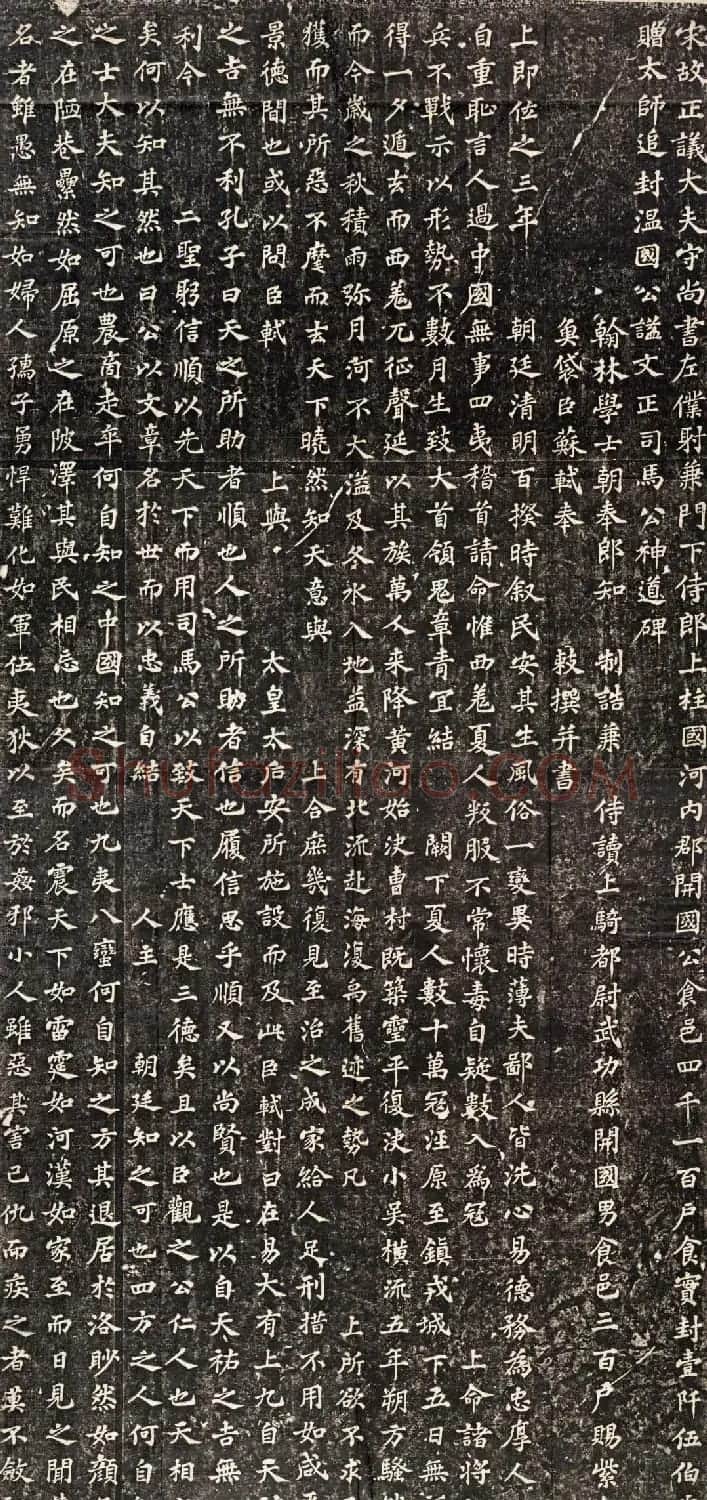 宋故正議大夫守尚書左僕射兼門下侍郎上柱國河内郡開國公食邑四千一百戶食實封壹阡伍伯
贈太師追封溫國公謚文正司馬公神道碑
翰林學士朝奉郎知 制誥兼 侍讀上騎都尉武功縣開國男食邑三百戶賜紫
魚袋臣蘇軾奉 敕撰并書
上即位之三年 朝廷清明百揆時叙民安其生風俗一變異時薄夫鄙人皆洗心易德務為忠厚人
自重恥言人過中國無事四夷稽首請命惟西羌夏人叛服不常懷毒自疑數入為寇 上命諸將
兵不戰示以形勢不數月生致大首領鬼章青宜結 闕下夏人數十萬寇涇原至鎮戎城下五日無
得一夕遁去而西羌兀征聲延以其族萬人來降黃河始決曹村既築靈平復決小吳橫流五年朔方騷
而今歲之秋積雨弥月河不大溢及冬水入地益深有北流赴海復禹舊迹之勢凡 上所欲不求
獲而其所惡不麾而去天下曉然知天意與 上合庶幾復見至治之成家給人足刑措不用如咸
景德間也或以問臣軾 上與 太皇太后安所施設而及此臣軾對曰在易大有上九自天
之吉無不利孔子曰天之所助者順也人之所助者信也履信思乎順又以尚賢也是以自天祐之吉無
利今 二聖躬信順以先天下而用司馬公以致天下士應是三德矣且以臣觀之公仁人也天相
矣何以知其然也曰公以文章名於世而以忠義自結 人主 朝廷知之可也四方之人何自
之士大夫知之可也農商走卒何自知之中國知之可也九夷八蠻何自知之方其退居於洛眇然如顏
之在陋巷纍然如屈原之在陂澤其與民相忘也久矣而名震天下如雷霆如河漢如家至而日見之聞
名者雖愚無知如婦人孺子勇悍難化如軍伍夷狄以至於姦邪小人雖惡其害己仇而疾之者莫不斂
Shufaziliao.COM